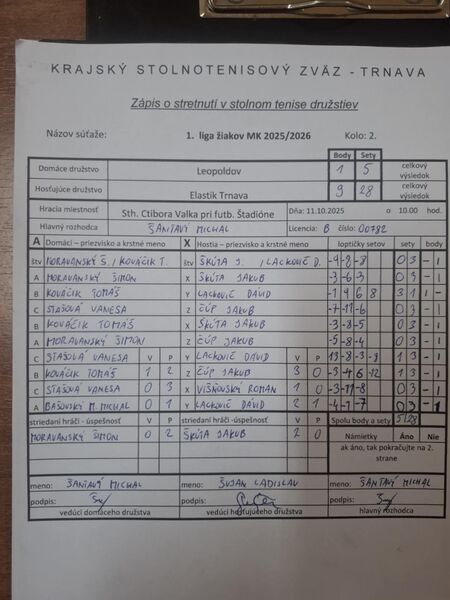 KRAJSKÝ STOLNOTENISOVÝ ZVÄZ - TRNAVA
Zápis o stretnutí v stolnom tenise družstiev
Názov súťaže: 1. liga žiakov MK 2025/2026 Kolo: 2.
Body Sety
Domáce družstvo Leopoldov 1 5 celkový výsledok
Hosťujúce družstvo Elastik Trnava 9 28 celkový výsledok
Hracia miestnosť Sth. Ctibora Valka pri futb. Štadióne Dňa: 11.10.2025 o 10.00 hod.
Hlavný rozhodca ŠANTAVÝ MICHAL Licencia: B číslo: 00782
A Domáci - priezvisko a krstné meno X Hostia - priezvisko a krstné meno loptičky setov sety body
štv MORAVANSKÝ Š. / KOVÁČIK T. štv ŠKÚTA J. / LACKOVIČ D. -4 -8 -8 0 3 - 1
A MORAVANSKÝ ŠIMON X ŠKÚTA JAKUB -3 -6 -3 0 3 - 1
B KOVÁČIK TOMÁŠ Y LACKOVIČ DAVID 3 1 1 -
C STAŠOVÁ VANESA Z ČÚP JAKUB -7 -11 -6 0 3 - 1
B KOVÁČIK TOMÁŠ X ŠKÚTA JAKUB -3 -8 -5 0 3 - 1
A MORAVANSKÝ ŠIMON Z ČÚP JAKUB -5 -8 -4 0 3 - 1
C STAŠOVÁ VANESA V P Y LACKOVIČ DAVID V P 13 -8 -3 -8 1 3 - 1
B KOVÁČIK TOMÁŠ 1 2 Z ČÚP JAKUB 3 0 -3 -4 6 -12 1 3 - 1
C STAŠOVÁ VANESA 0 3 X VIŠŇOVSKÝ ROMAN 1 0 -3 -11 -8 0 3 - 1
A BAŠOVSKÝ M. MICHAL 0 1 Y LACKOVIČ DAVID 2 1 -4 -7 -7 0 3 - 1
striedaní hráči - úspešnosť V P striedaní hráči - úspešnosť V P Spolu body a sety 5 28
MORAVANSKÝ ŠIMON 0 2 ŠKÚTA JAKUB 2 0 Námietky Áno Nie
ak áno, tak pokračujte na 2. strane
meno: ŠANTAVÝ MICHAL meno: ŠUJAN LADISLAV meno: ŠANTAVÝ MICHAL
podpis: podpis: podpis:
vedúci domáceho družstva vedúci hosťujúceho družstva hlavný rozhodca